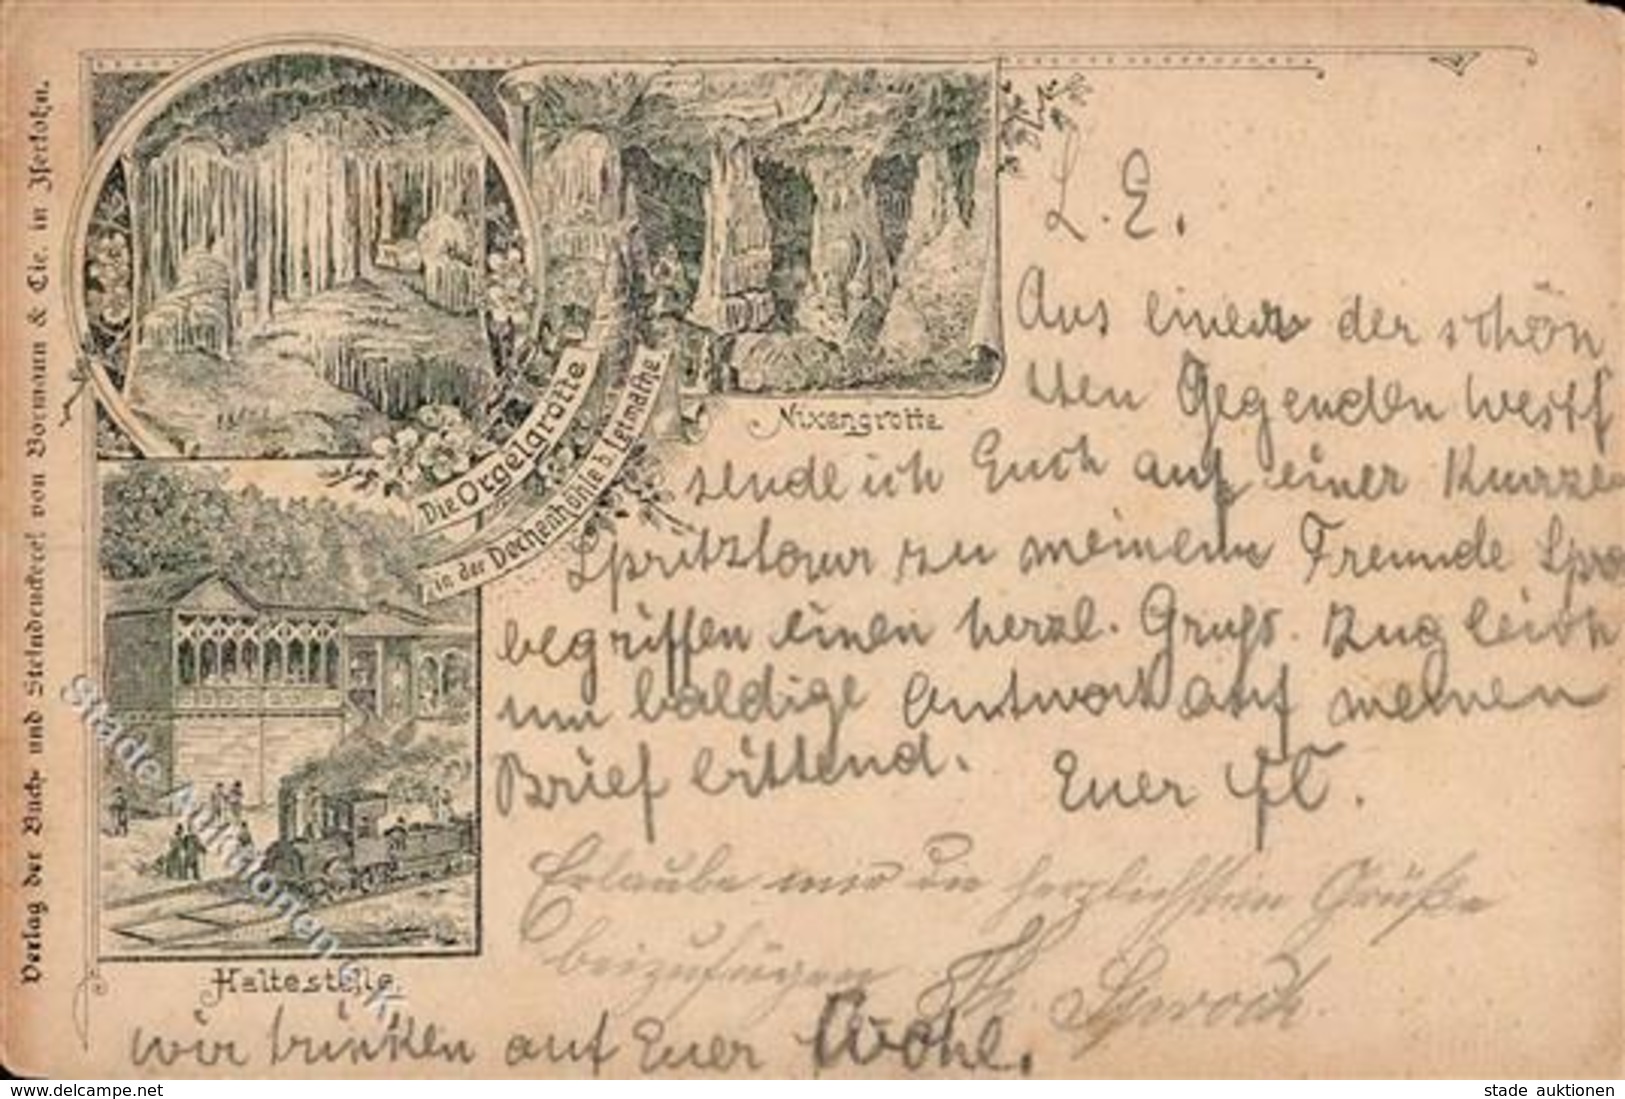 Verlag der Buch- und Steindruckerei von Bormann & Cie. in Iserlohn.
Die Orgelgrotte
in der Dechenhöhle b. Letmathe
Nixengrotte
Haltestelle
L. E.
Aus einer der schön
sten Gegenden Westf
sende ich Euch auf einer kurzen
Spritztour zu meinem Freunde
begriffen einen herzl. Gruß. Zugleich
um baldige Antwort auf meinen
Brief bittend. Euer
Erlaube mir die herzlichsten Grüße
beizufügen Th.
wir trinken auf Euer Wohl.
Stade Auktionen
www.delcampe.net
stade auktionen